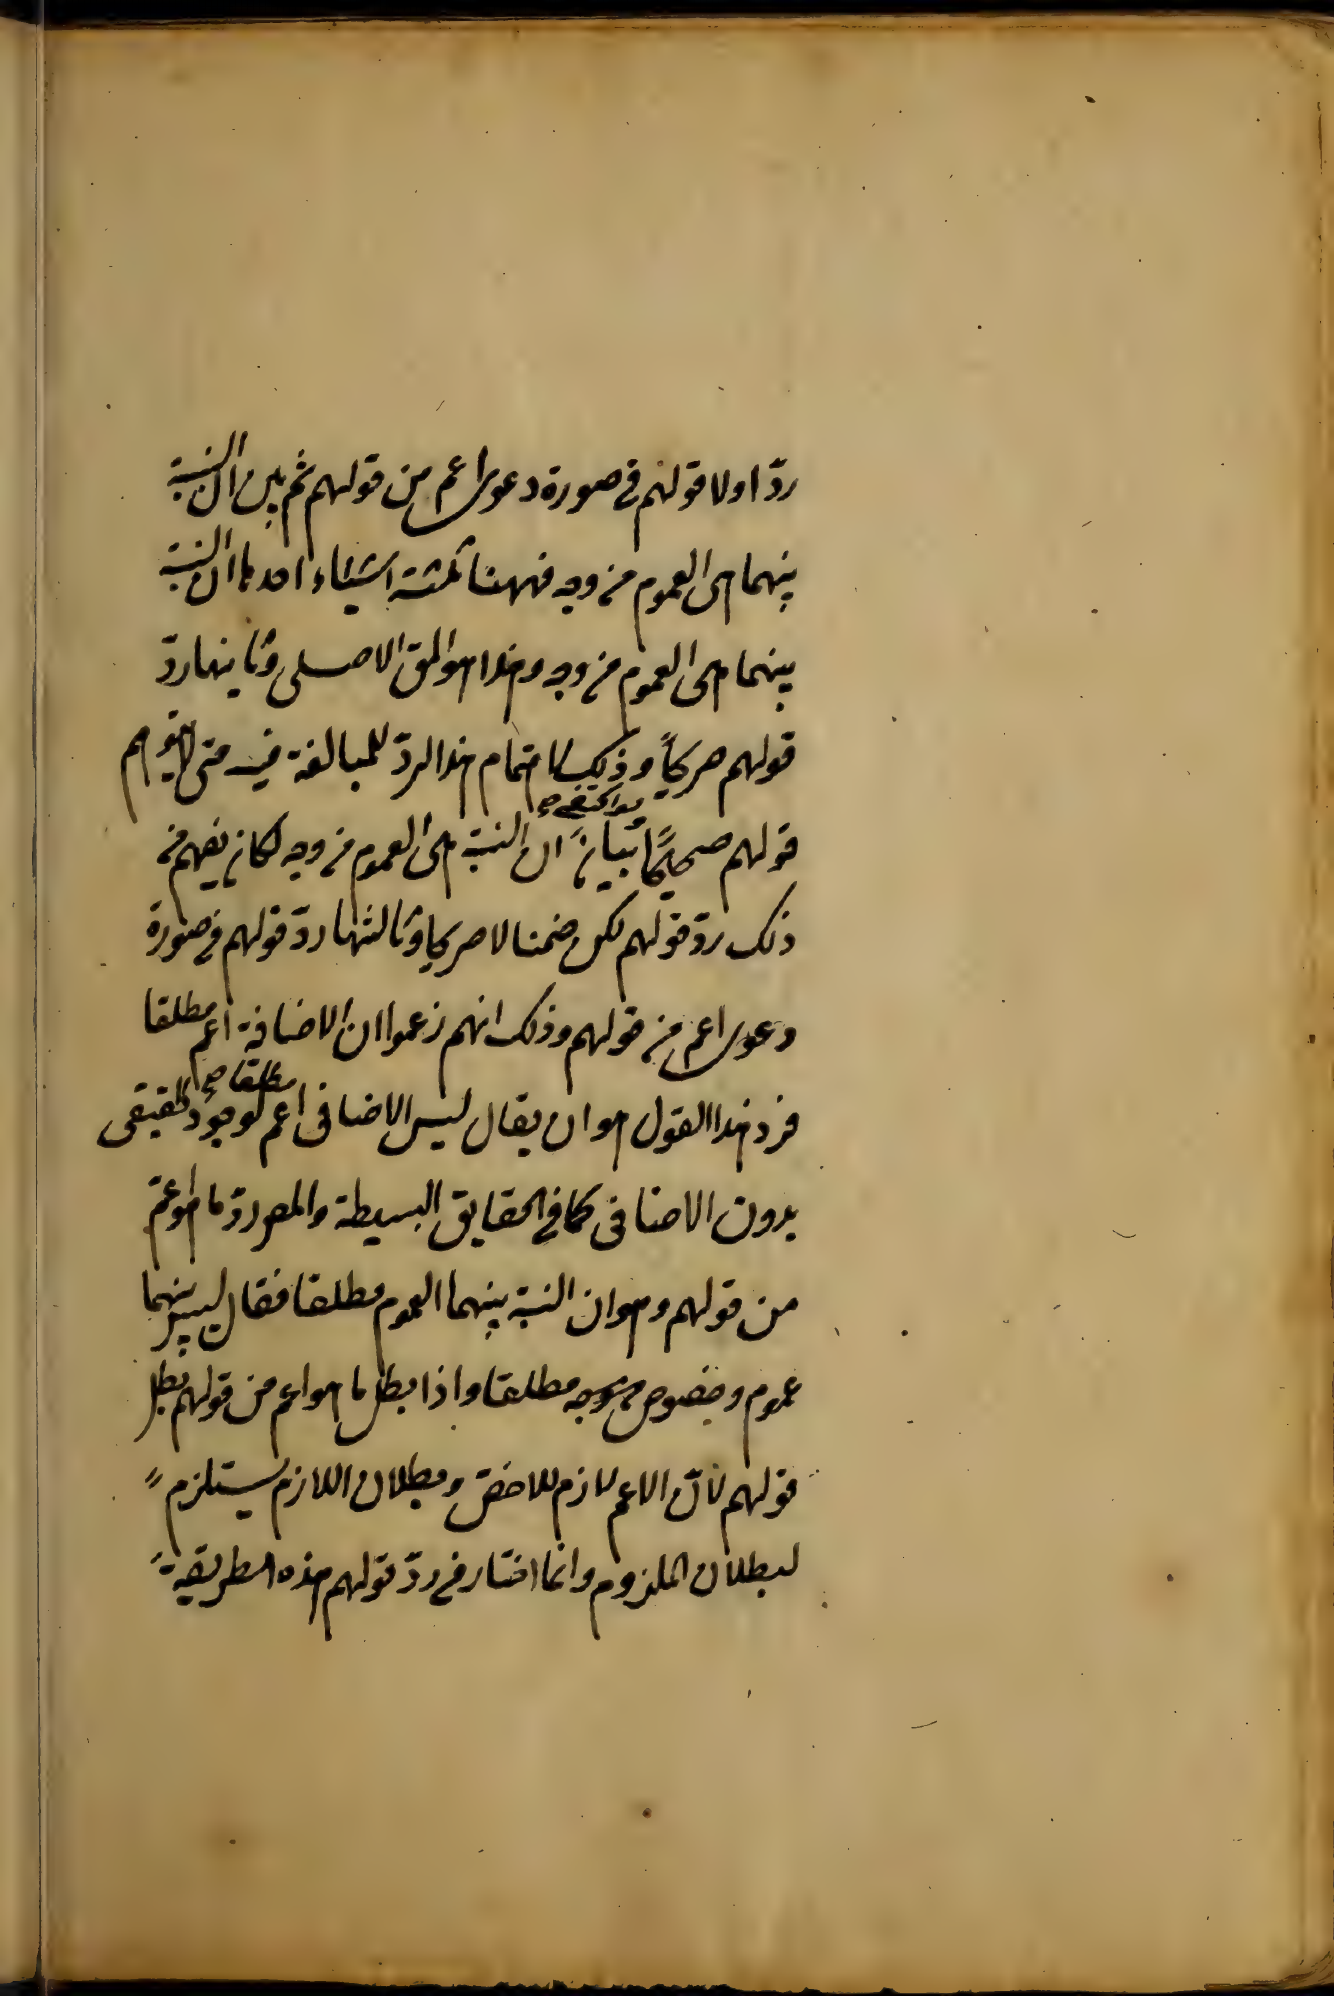 ردّ اولا قولهم فى صورة دعوى اعم من قولهم ثم بين ان النسبة
بينهما هى العموم من وجه فههنا ثلثة اشياء احدها ان النسبة
بينهما هى العموم من وجه وهذا هو المق الاصلى وثانيها ردّ
قولهم صريحاً وذلك لاهتمام هذا الردّ للمبالغة فيه حتى لا يتوهم
قولهم صحيحًا
لو اكتفى صح
ببيان ان النسبة هى العموم من وجه لكان يفهم من
ذلك ردّ قولهم لكن ضمنا لا صريحا وثالثها ردّ قولهم فى صورة
دعوى اعم من قولهم وذلك انهم زعموا ان الاضافة اعم مطلقا
فردّ هذا القول هو ان يقال ليس الاضافى اعم
مطلقا صح
لوجود الحقيقى
بدون الاضافى كما فى الحقايق البسيطة والمص ردّ ما هو اعم
من قولهم وهو ان النسبة بينهما العموم مطلقا فقال ليس بينهما
عموم وخصوص مطلقا واذا بطل ما هو اعم من قولهم بطل
قولهم لانّ الاعم لازم للاخص وبطلان اللازم يستلزم
لبطلان الملزوم وانما اختار فى ردّ قولهم هذه الطريقة